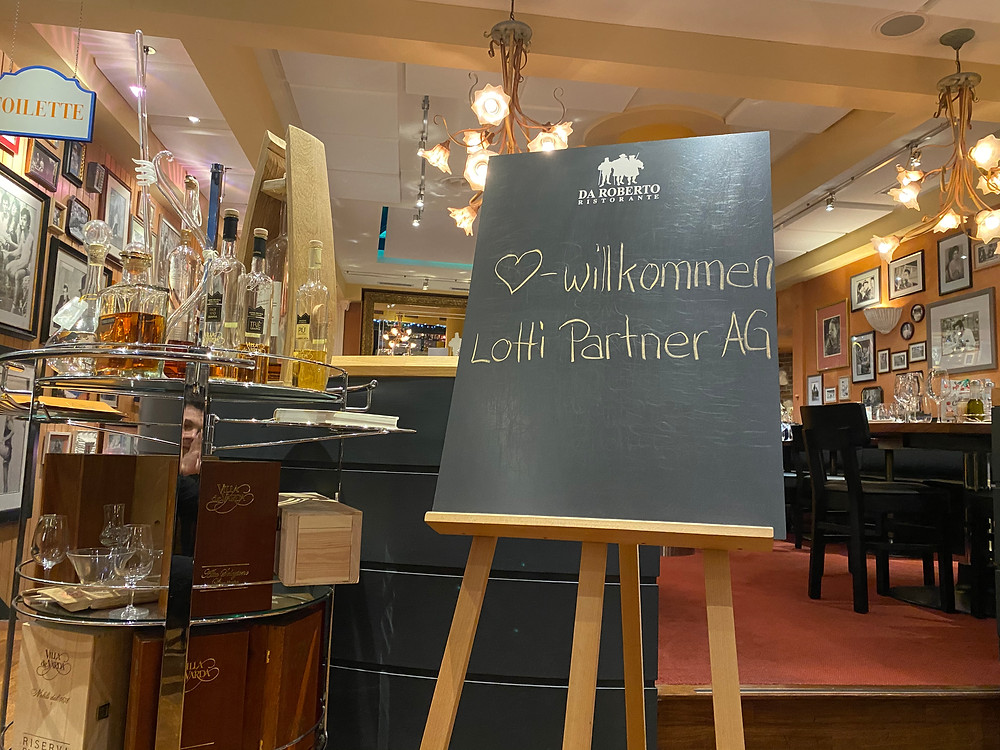 TOILETTE
DA ROBERTO
RISTORANTE
♡-willkommen
Lotti Partner AG
VILLA
de VARDA
VILLA
de VARDA
RISERVA